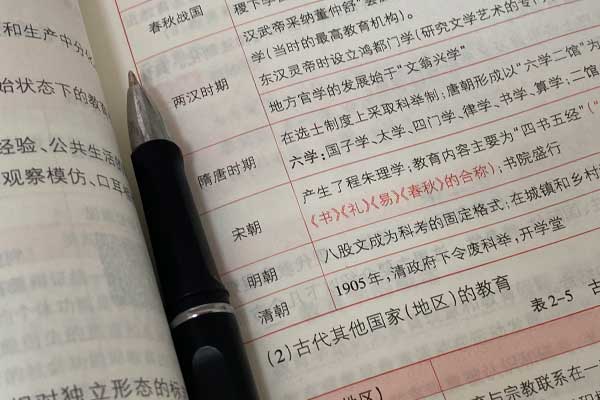 和生产中分化
始状态下的教育
经验、公共生活
观察模仿、口耳
相对独立形态的标
春秋战国
稷下学
汉武帝采纳董仲舒"
学(当时的最高教育机构)。
东汉灵帝时设立鸿都门学(研究文学艺术的专门
两汉时期
地方官学的发展始于"文翁兴学"
在选士制度上采取科举制;唐朝形成以"六学二馆"为
隋唐时期
六学:国子学、太学、四门学、律学、书学、算学;二馆
产生了程朱理学;教育内容主要为"四书五经"("
宋朝
《书》《礼》《易》《春秋》的合称);书院盛行
明朝
八股文成为科考的固定格式;在城镇和乡村
清朝
1905年,清政府下令废科举,开学堂
(2)古代其他国家(地区)的教育
表2-5 古
地区)
育与宗教联系在一